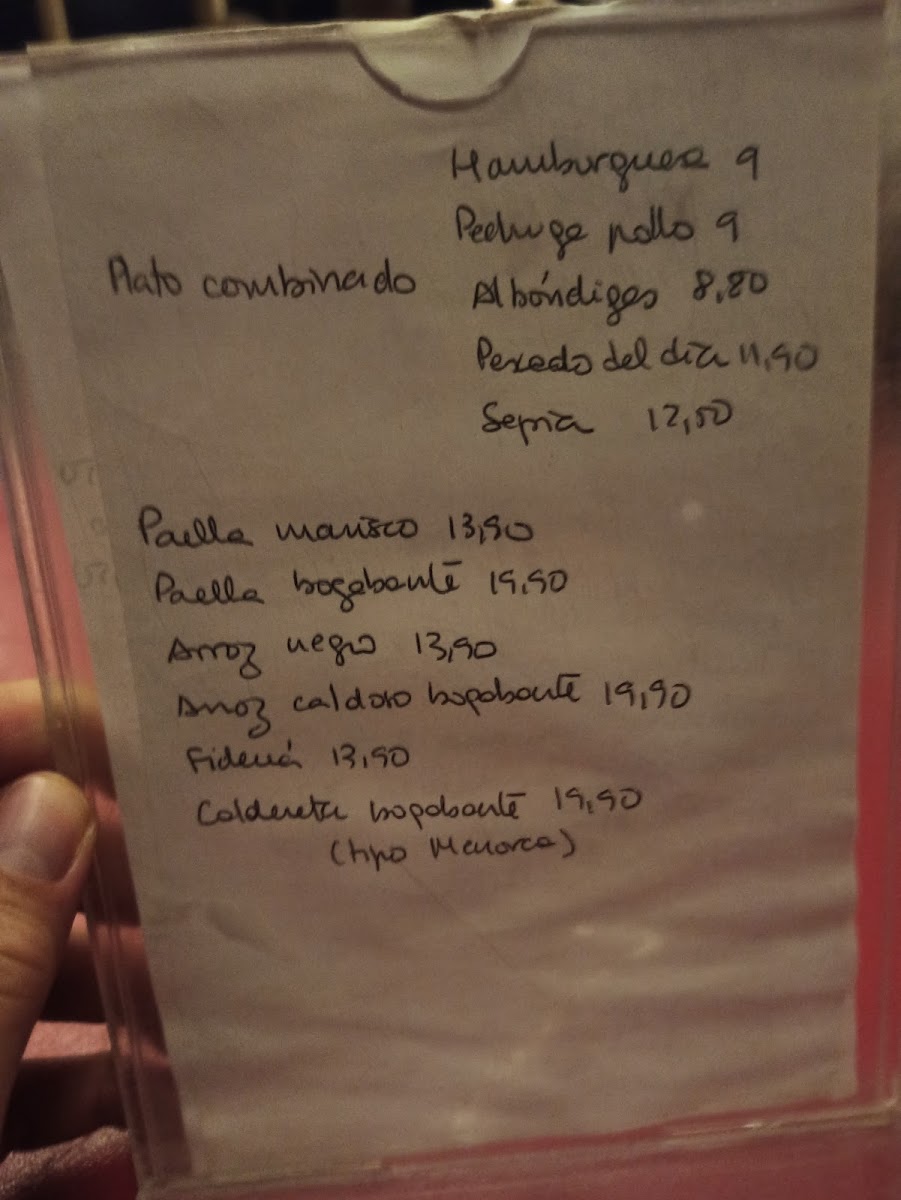 Hamburguesa 9
Pechuga pollo 9
Plato combinado
Albóndigas 8,80
Pescado del día 11,90
Sepia 12,50
Paella marisco 13,90
Paella bogabante 19,90
Arroz negro 13,90
Arroz caldoso bogabante 19,90
Fideuá 13,90
Caldereta bogabante 19,90
(tipo Menorca)